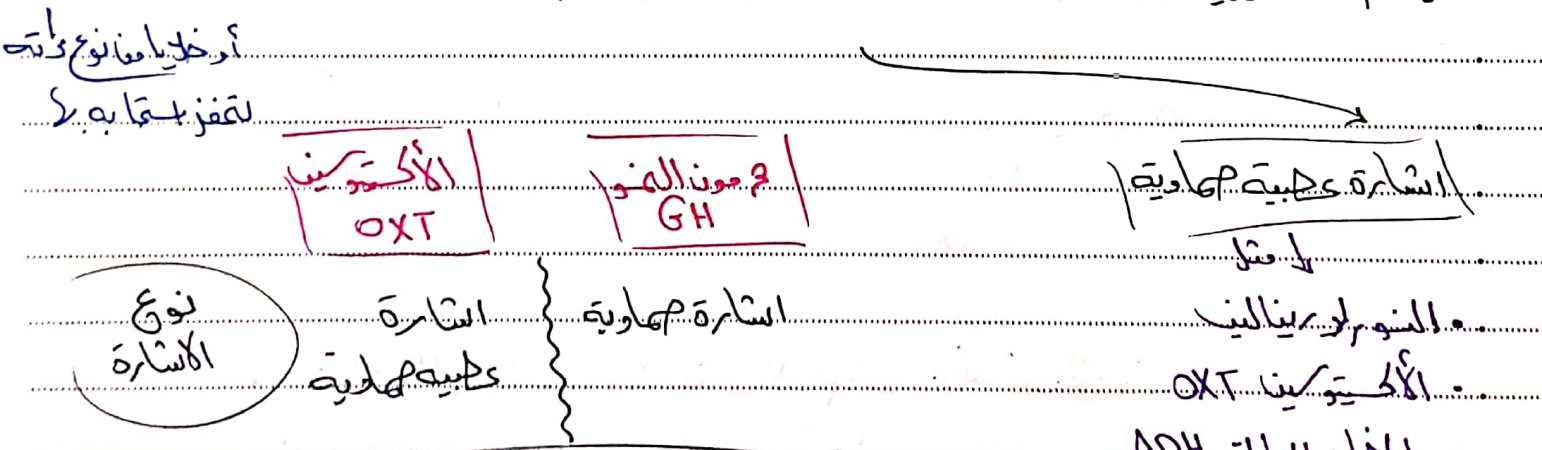 أو خلايا من نوع ذاته
لتحفز استجابة لها
إشارة عصبية صماوية
مثل
• النورإدرينالين
• الأكسيتوسين OXT
ADH
هرمون النمو
GH
الأكسيتوسين
OXT
نوع
الاشارة
اشارة صماوية
اشارة
عصبية صماوية